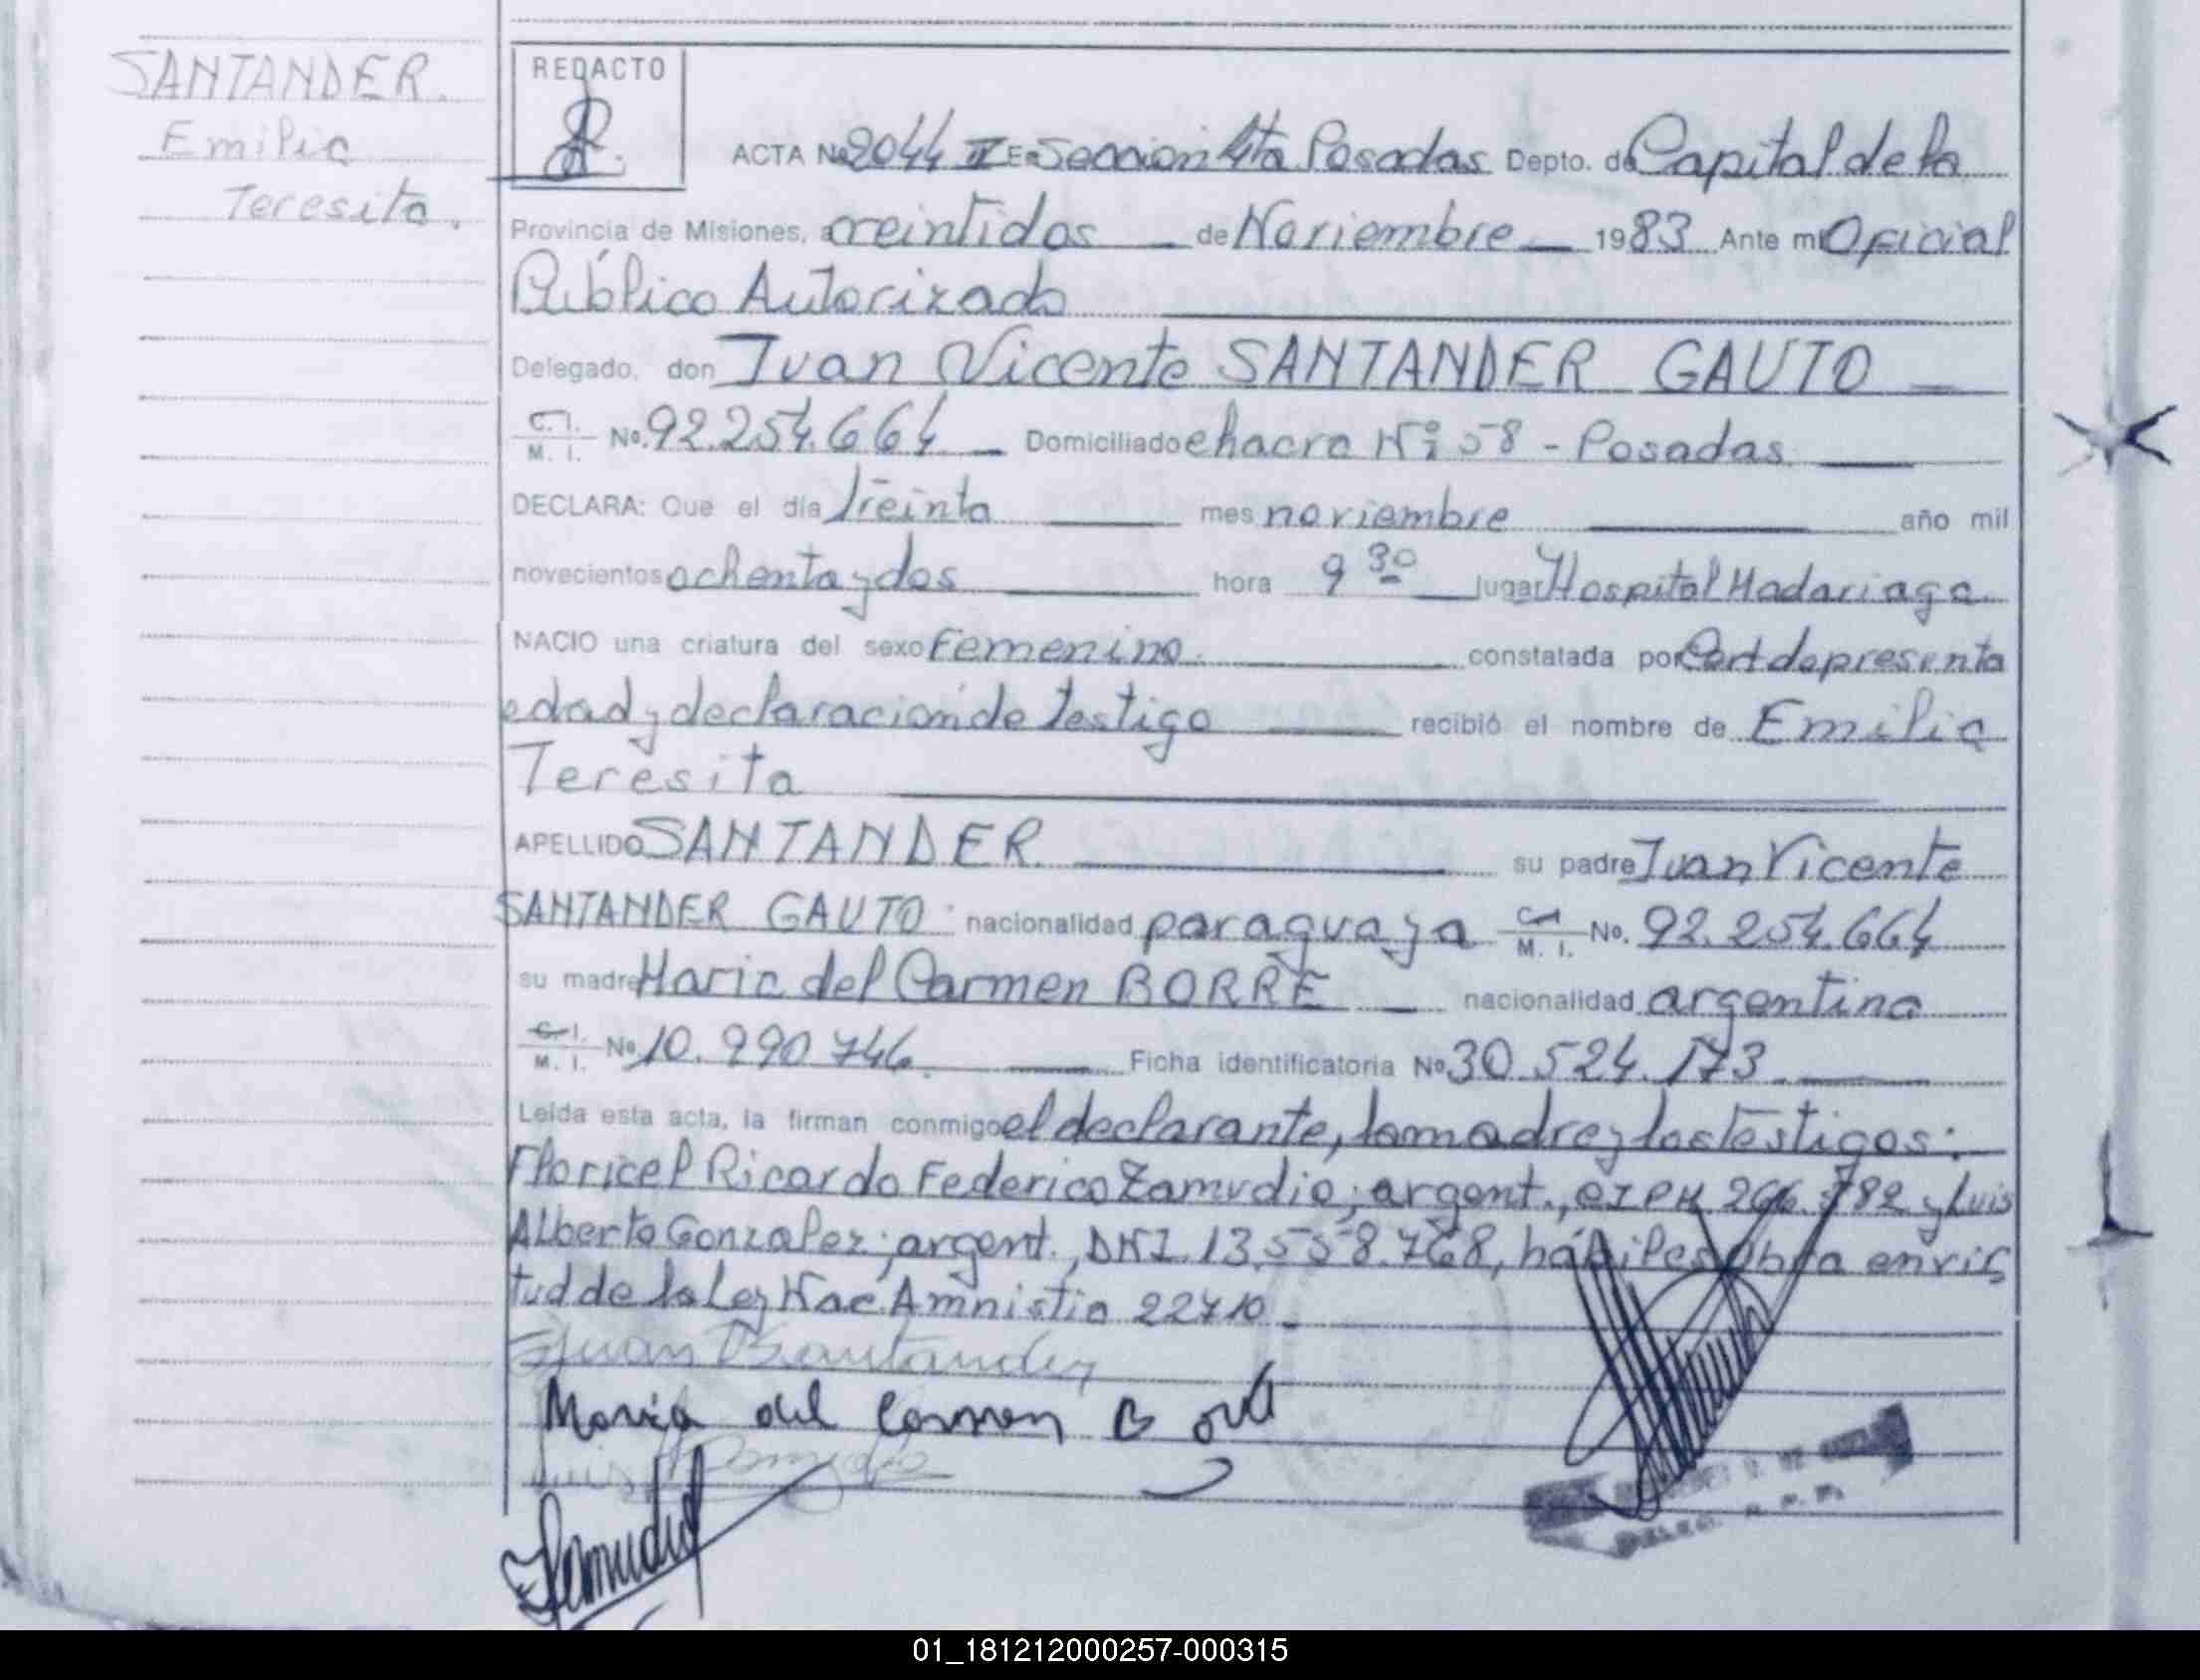 SANTANDER.
Emilia
Teresita.
REDACTO
ACTA No 2044 II En Seccion 4ta Posadas Depto. de Capital de la
Provincia de Misiones, a veintidos de Noviembre 1983 Ante mi Oficial
Público Autorizado
Delegado, don Juan Vicente SANTANDER GAUTO
C. I.
M. I. No. 92.254.664 Domiciliado chacra Nº 58 - Posadas
DECLARA: Que el día treinta mes noviembre año mil
novecientos ochenta y dos hora 9 30 lugar Hospital Madariaga
NACIO una criatura del sexo Femenino. constatada por Cert de presenta
edad y declaracion de testigo recibió el nombre de Emilia
Teresita
APELLIDO SANTANDER su padre Juan Vicente
SANTANDER GAUTO nacionalidad paraguaya C.I. M. I. No. 92.254.664
su madre Maria del Carmen BORRE nacionalidad argentina
C. I.
M. I. No 10.990 746. Ficha identificatoria No 30.524.173
Leída esta acta, la firman conmigo el declarante, la madre y los testigos:
Floricel Ricardo Federico Zamudio; argent., CIPM 266.782 y Luis
Alberto Gonzalez; argent., DNI.13.558.768, hábiles Obra en vir
tud de la Ley Nac. Amnistia 22710.
Juan Santander
Maria del Carmen Borre
Zamudio
01_181212000257-000315